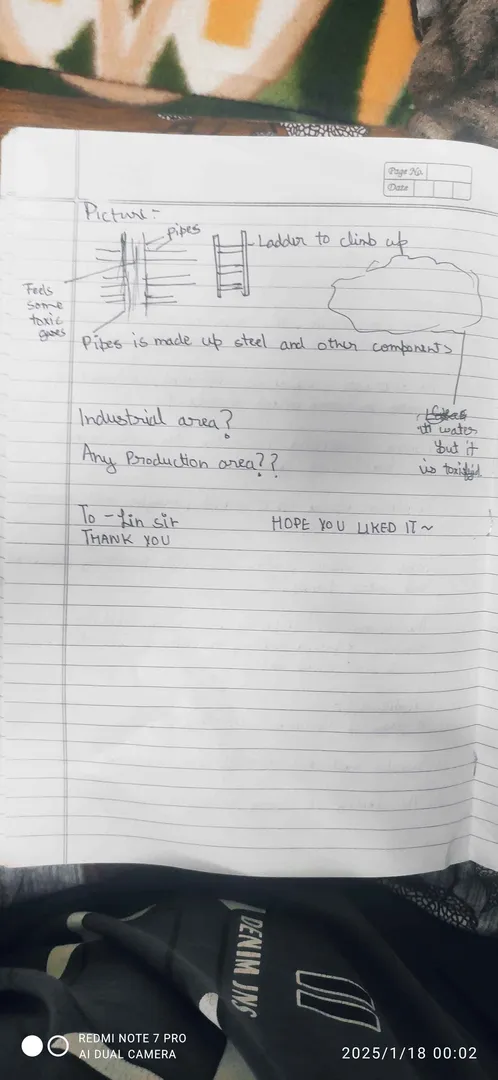 Page No.
Date
Picture:-
pipes
Ladder to climb up
Feels
some
toxic
gases
Pipes is made up steel and other components
Industrial area?
water
but it
is
Any Production area??
To - Lin sir
THANK YOU
HOPE YOU LIKED IT ~
DENIM INS
REDMI NOTE 7 PRO
AI DUAL CAMERA
2025/1/18 00:02